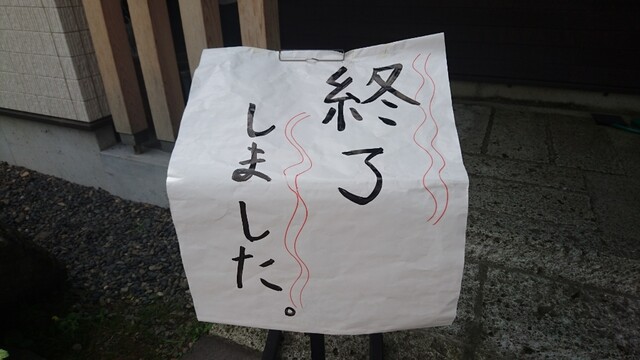 終了
しました。